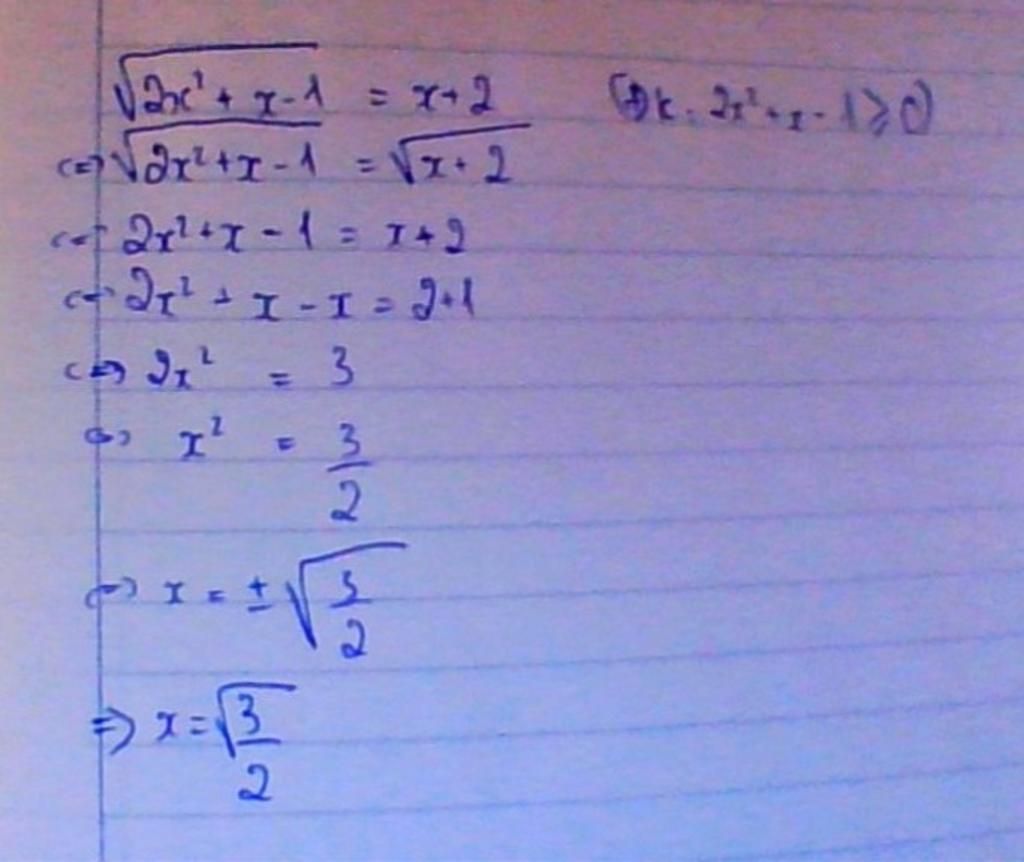 √(2x² + x - 1) = x + 2 (Đk: 2x² + x - 1 ≥ 0)
<=> √(2x² + x - 1) = √(x + 2)
<=> 2x² + x - 1 = x + 2
<=> 2x² + x - x = 2 + 1
<=> 2x² = 3
<=> x² = 3/2
<=> x = ± √(3/2)
=> x = √(3/2)